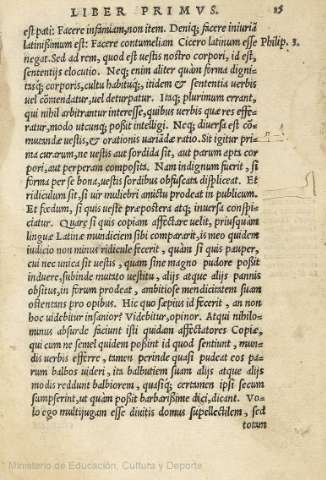 LIBER PRIMVS. 15
est pati: Facere infamiam, non item. Deniq; facere iniuriā
latinissimum est: Facere contumeliam Cicero latinum esse Philip. 3.
negat. Sed ad rem, quod est uestis nostro corpori, id est,
sententijs elocutio. Neq; enim aliter quàm forma digni-
tasq; corporis, cultu habituq;, itidem & sententia uerbis
uel cōmendatur, uel deturpatur. Itaq; plurimum errant,
qui nihil arbitrantur interesse, quibus uerbis quæ res effe-
ratur, modo utcunq; possit intelligi. Neq; diuersa est cō-
mutandæ uestis, & orationis uariādæ ratio. Sit igitur pri-
ma curarum, ne uestis aut sordida sit, aut parum apta cor-
pori, aut perperam composita. Nam indignum fuerit, si
forma per se bona, uestis sordibus obfuscata displiceat. Et
ridiculum sit, si uir muliebri amictu prodeat in publicum.
Et fœdum, si quis ueste præpostera atq; inuersa conspi-
ciatur. Quare si quis copiam affectare uelit, priusquàm
linguæ Latinæ mundiciem sibi compararit, is meo quidem
iudicio non minus ridicule fecerit, quàm si quis pauper,
cui nec unica sit uestis, quam sine magno pudore possit
induere, subinde mutato uestitu, alijs atque alijs pannis
obsitus, in forum prodeat, ambitiose mendicitatem suam
ostentans pro opibus. Hic quo sæpius id fecerit, an non
hoc uidebitur insanior? Videbitur, opinor. Atqui nihilo-
minus absurde faciunt isti quidam affectatores Copiæ,
qui cum ne semel quidem possint id quod sentiunt, mun-
dis uerbis efferre, tamen perinde quasi pudeat eos pa-
rum balbos uideri, ita balbutiem suam alijs atque alijs
modis reddunt balbiorem, quasiq; certamen ipsi secum
sumpserint, ut quàm possit barbarissime dici, dicant. Vo-
lo ego multijugam esse diuitis domus supellectilem, sed
totam
Ministerio de Educación, Cultura y Deporte